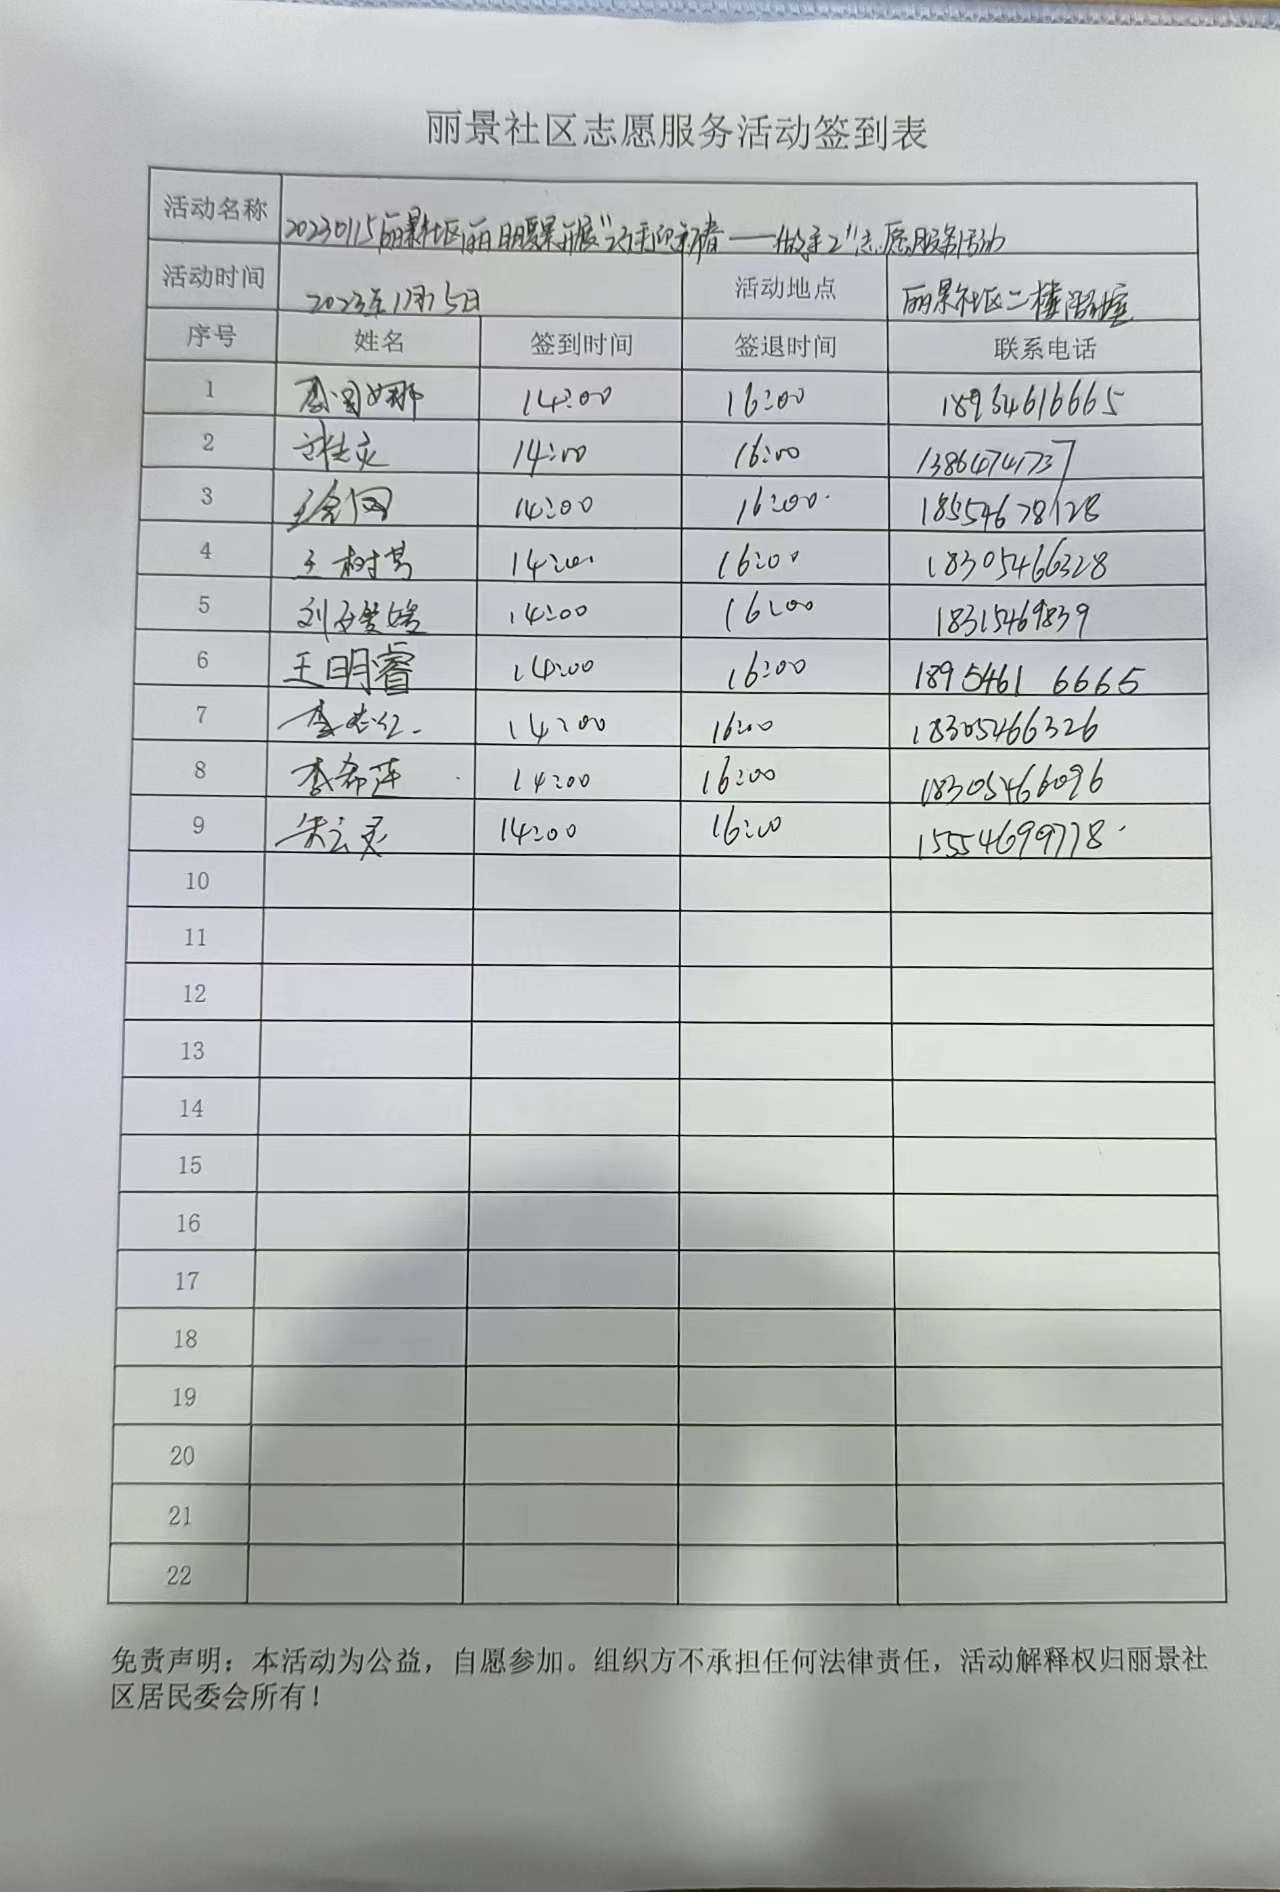 丽景社区志愿服务活动签到表
活动名称 20230115丽景社区丽 开展"巧手迎新春——做手工"志愿服务活动
活动时间 2023年1月15日 活动地点 丽景社区二楼活动室
序号 姓名 签到时间 签退时间 联系电话
1 李 娜 14:00 16:00 18954616665
2 14:00 16:00 13864741737
3 14:00 16:00 18554678128
4 王树 14:00 16:00 18305466328
5 刘 14:00 16:00 18315469839
6 王明睿 14:00 16:00 1895461 6665
7 李 14:00 16:00 18305466326
8 李希莲 14:00 16:00 18305466096
9 朱云灵 14:00 16:00 15554699778
10
11
12
13
14
15
16
17
18
19
20
21
22
免责声明：本活动为公益，自愿参加。组织方不承担任何法律责任，活动解释权归丽景社
区居民委会所有！